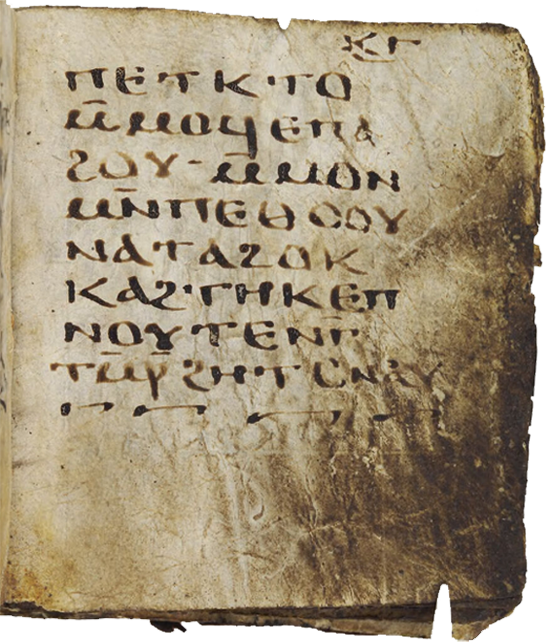 ⲕⲅ
ⲡⲉⲧⲕ·ⲧⲟ
ⲙ̅ⲙⲟϥⲉⲡⲁ
ϩⲟⲩ· ⲙⲙⲟⲛ
ⲙⲛ̅ⲡⲉⲑⲟⲟⲩ
ⲛⲁⲧⲁϩⲟⲕ
ⲕⲁϩ·ⲧⲏⲕⲉⲡ
ⲛⲟⲩⲧⲉⲛⲅ̅
ⲧⲙ̅ⲣ̅ϩⲏⲧⲥⲛⲁⲩ